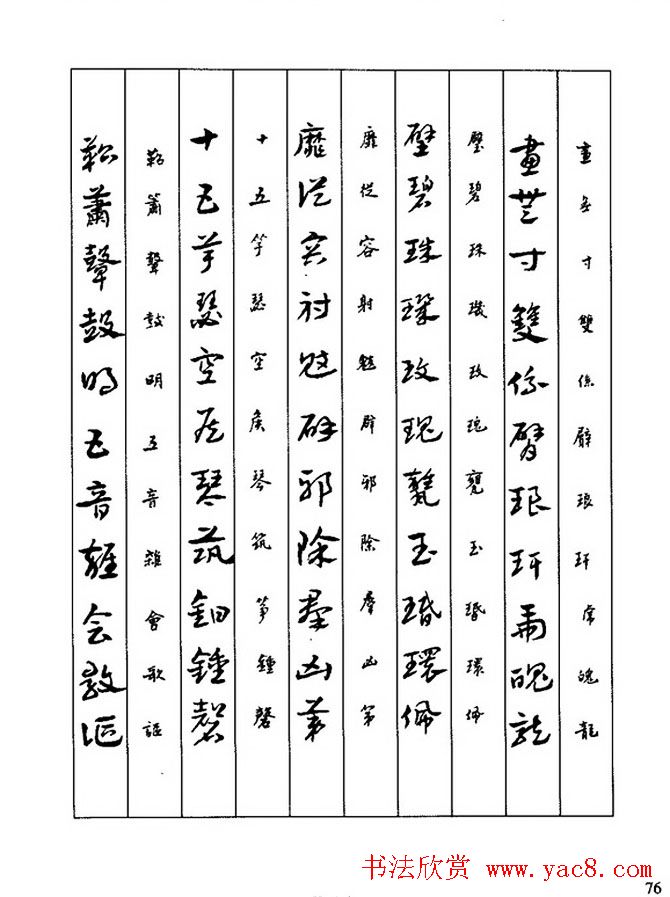 畫無寸雙係臂琅玕魄龍
畫無寸雙係臂琅玕魄龍
璧碧珠璣玫瑰甕玉環佩
璧碧珠璣玫瑰甕玉環佩
靡從容射鬾辟邪除羣凶第
靡從容射鬾辟邪除羣凶第
十五竽瑟空侯琴筑箏鍾磬
十五竽瑟空侯琴筑鍾磬
鞀簫聲鼓明五音雜會歌謳
鞀簫聲鼓鳴五音雜會歌謳
书法欣赏 www.yac8.com
76